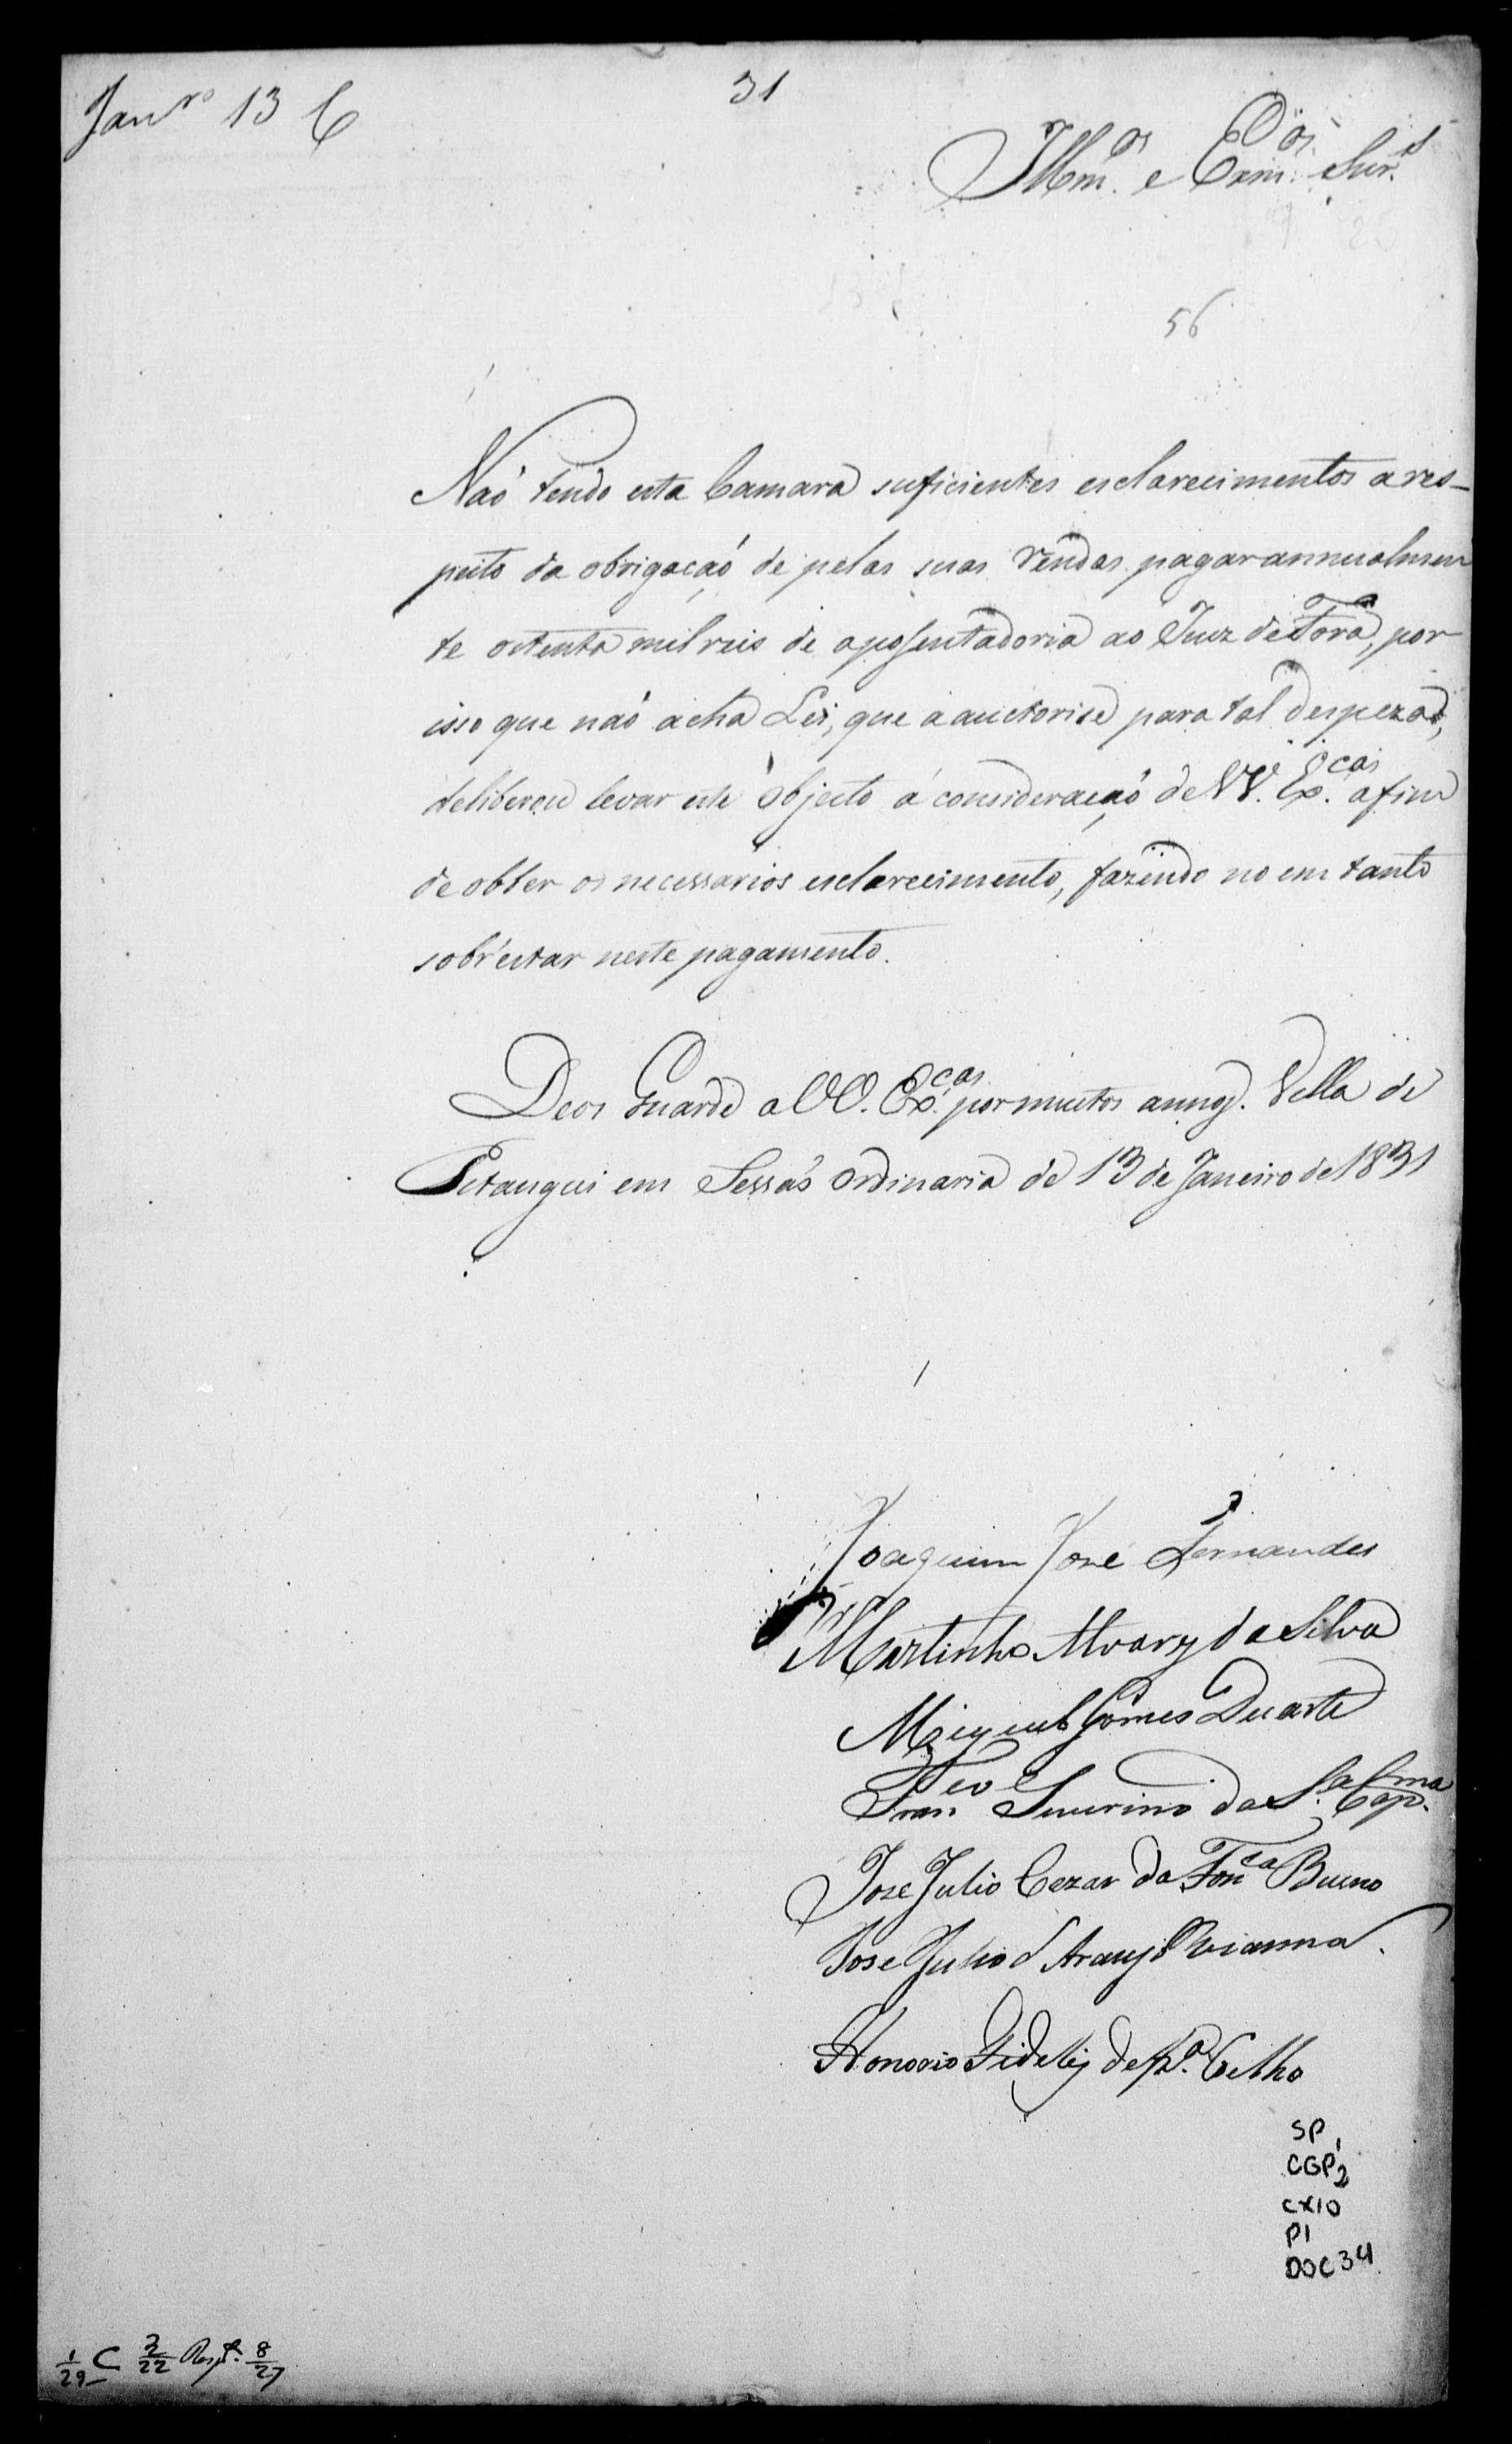 Janro 13 C
31
Illmos. e Exmos. Snrs.
56
Naõ tendo esta Camara suficientes esclarecimentos a res-
peito da obrigaçaõ de pelas suas rendas pagar annualmen
te oitenta mil reis de aposentadoria ao Juiz de Fora, por
isso que naõ acha Lei, que a auctorise para tal despeza,
deliberou levar este objecto á consideraçaõ de VV. Excas. afim
de obter os necessarios esclarecimento, fazendo no em tanto
sobr'estar neste pagamento.
Deos Guarde a VV. Excas. por muitos annos. Villa de
Pitangui em Sessaõ Ordinaria de 13 de Janeiro de 1831
Joaquim José Fernandes
Martinho Alvarz da Silva
Miguel Gomes Duarte
Franco Severino da Sa
Jose Julio Cezar da Fonca Bueno
Jose Julio d'Araujo Vianna.
Honorio Fidelis de
SP
CGP 1/2
CX10
P1
DOC 34
1/29 C 3/22 8/27